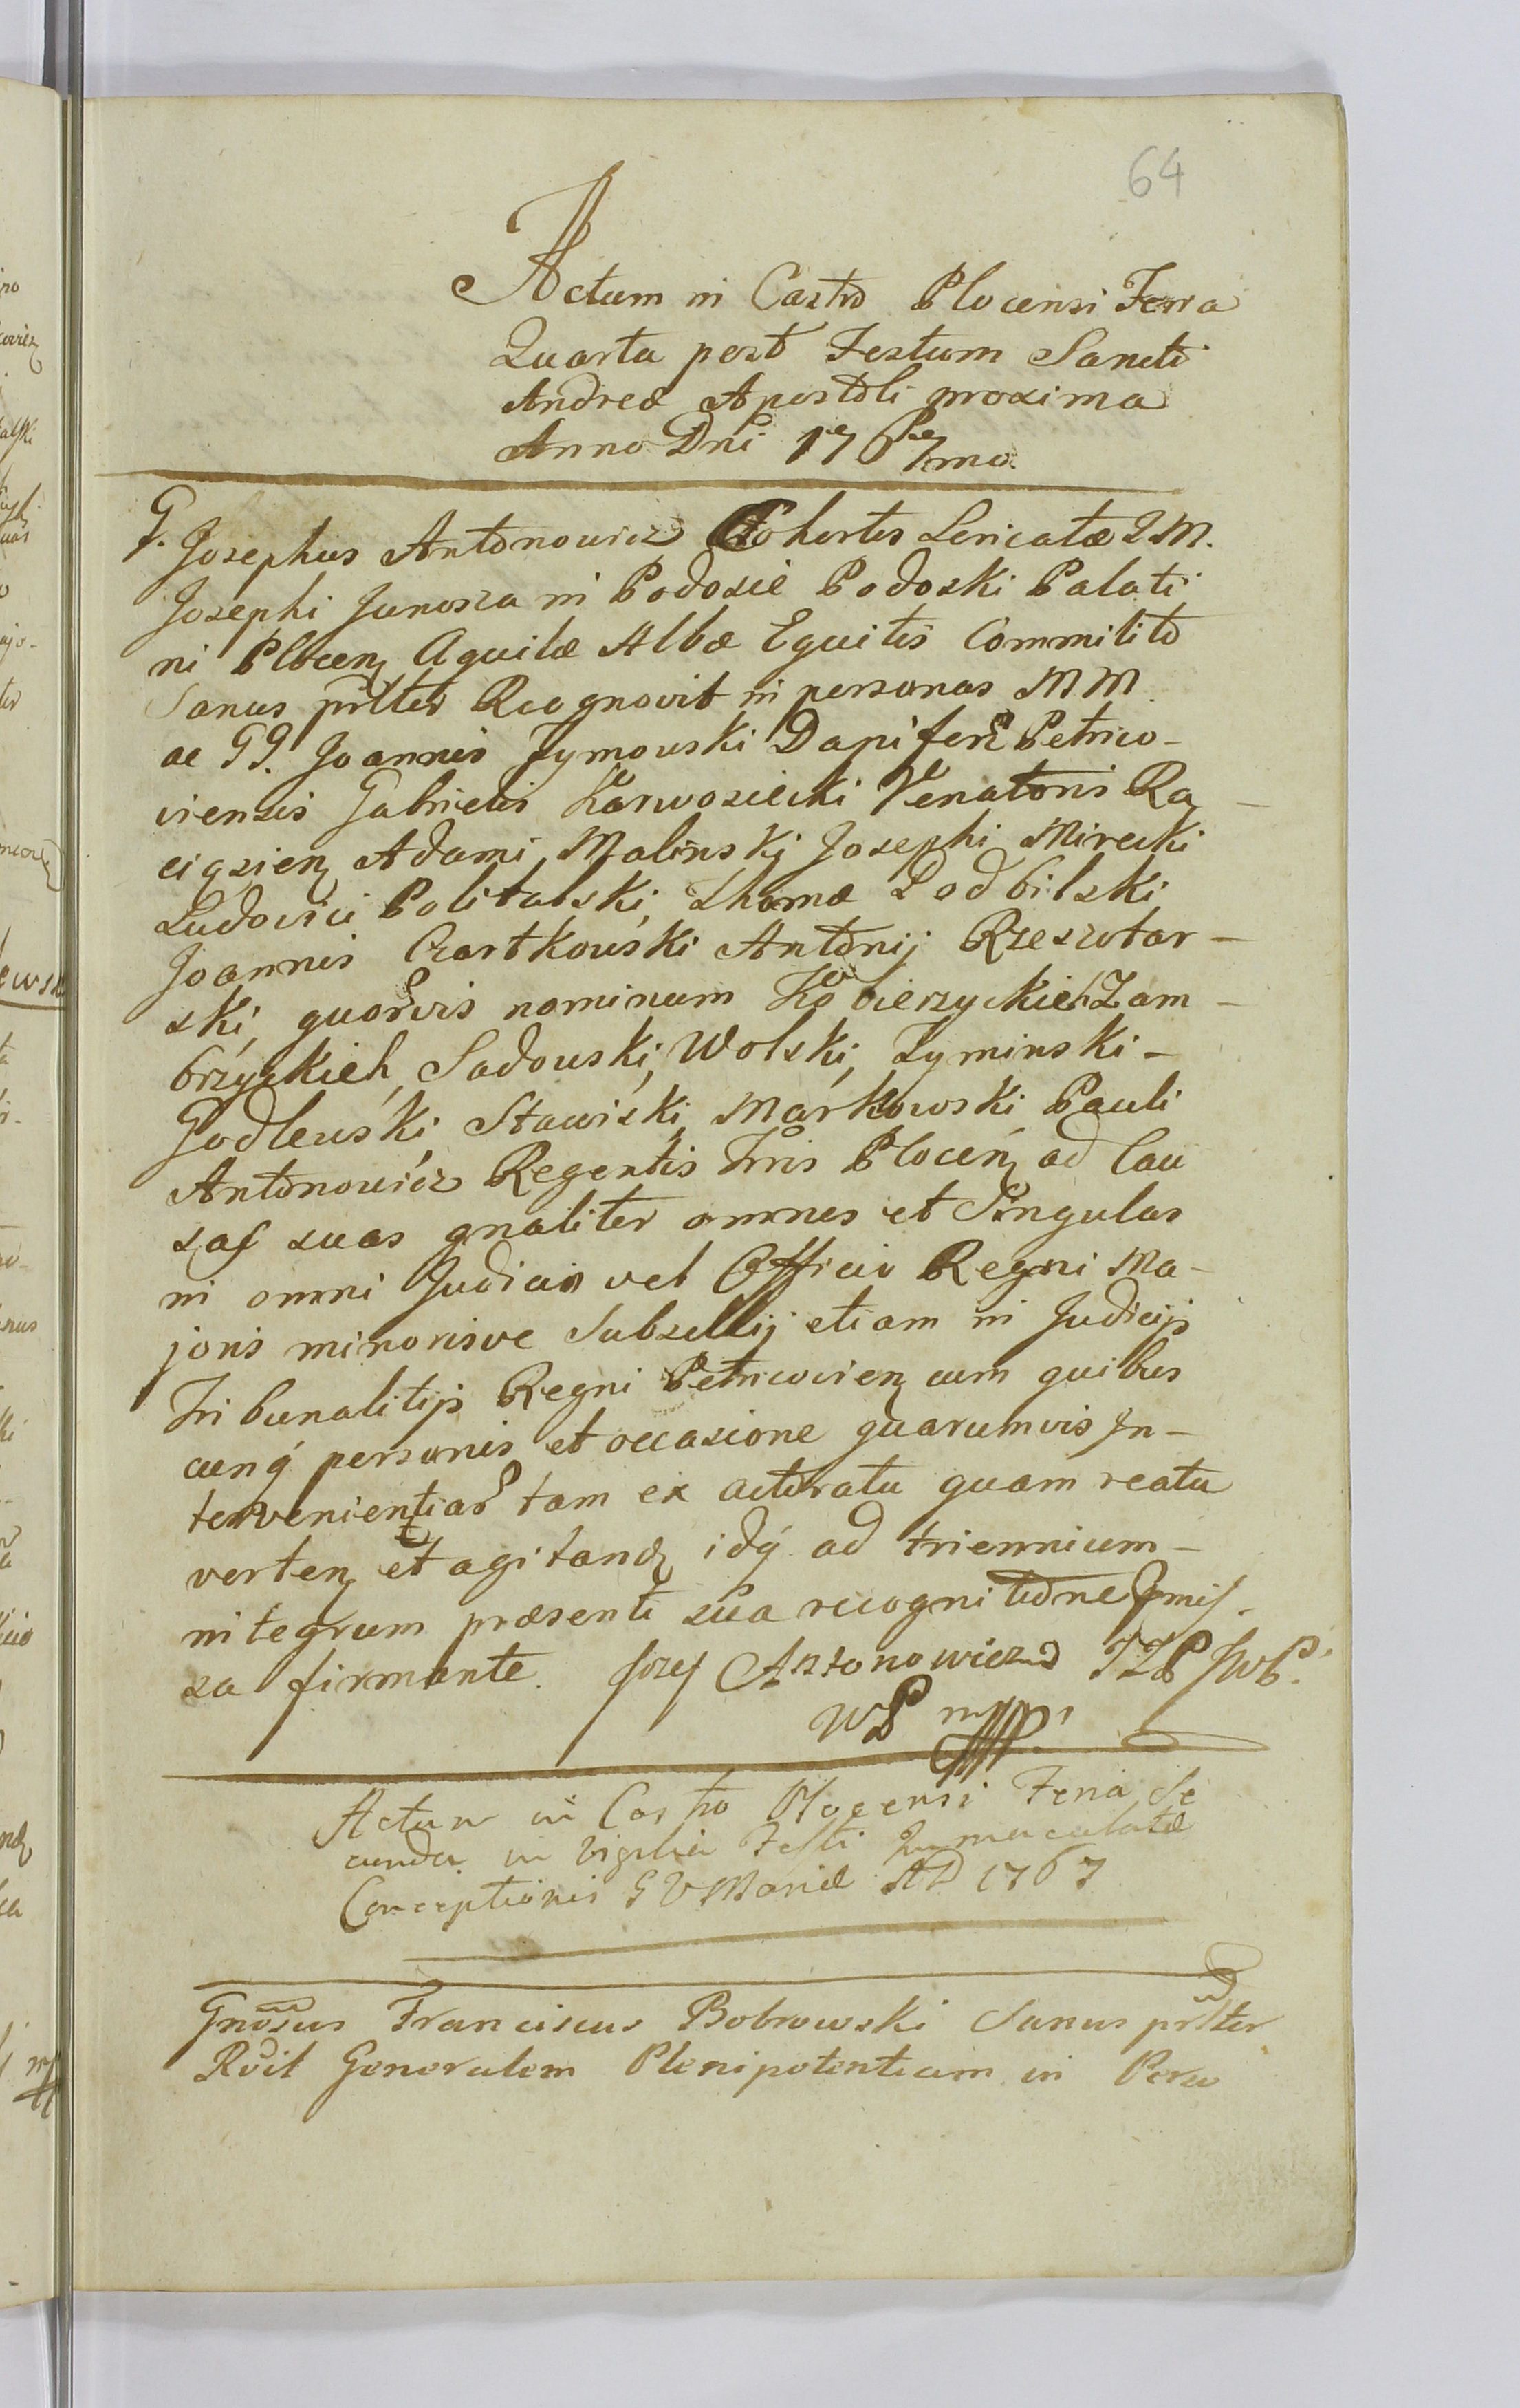 64
Actum in Castro Plocensi Feria
Quarta post Festum Sancti
Andreæ Apostoli proxima
Anno Dni 1767mo.
G. Josephus Antonowicz Cohortis Loricatæ I M.
Josephi Junosza in Podosie Podoski Palati
ni Plocen Aquilæ Albæ Equitis Commilito
Sanus prltter Recognovit in personas MM.
ac GG. Joannis Zymowski Dapiferi Petrico-
viensis Gabrielis Karwosiecki Venatoris Ra-
ciązien Adami Malinski Josephi Mirecki
Ludovici Politalski, Thomæ Podbilski
Joannis Czartkowski Antonij Rzeszotar-
ski, quorvis nominum Kobierzyckich Zam-
brzyckich, Sadowski, Wolski, Zyminski-
Godlewski, Stawiski, Markowski Pauli
Antonowicz Regentis Trris Plocen ad Cau
sas suas gnaliter omnes et Singulas
in omni Judicio vel Officio Regni Ma-
joris minorisve Subsellij etiam in Judicijs
Tribunalitijs Regni Petricovien cum quibus
cunq personis et occasione quarumvis In-
tervenientiar tam ex actoratu quam reatu
verten et agitand idq ad triennium-
integrum præsenti sua recognitione
sa firmante. Jozef Antonowicz
Actum in Castro Plocensi Feria Se
cunda in Vigilia Festi Immaculatæ
Conceptionis B V Mariæ AD 1767
Gnosus Franciscus Bobrowski Sanus prltter
Rvit Generalem Plenipotentiam in Perso